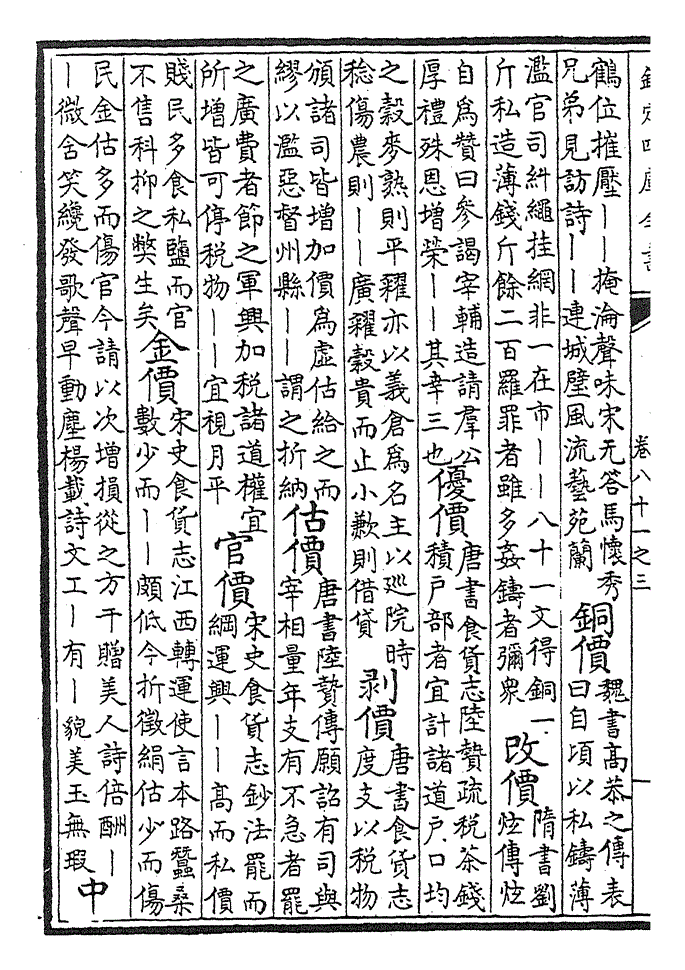 欽定四庫全書
卷八十一之三
鶴位摧壓丨丨掩淪聲味宋无答馬懷秀
兄弟見訪詩丨丨連城璧風流藝苑蘭
銅價
魏書高恭之傳表
曰自頃以私鑄薄
濫官司糾繩挂網非一在市丨丨八十一文得銅一
斤私造薄錢斤餘二百羅罪者雖多姦鑄者彌衆
改價
隋書劉
炫傳炫
自為贊曰參謁宰輔造請羣公
厚禮殊恩增榮丨丨其幸三也
優價
唐書食貨志陸贄疏税茶錢
積户部者宜計諸道户口均
之穀麥熟則平糴亦以義倉為名主以巡院時
稔傷農則丨丨廣糴穀貴而止小歉則借貸
剥價
唐書食貨志
度支以税物
頒諸司皆增加價為虛估給之而
繆以濫惡督州縣丨丨謂之折納
估價
唐書陸贄傳願詔有司與
宰相量年支有不急者罷
之廣費者節之軍興加税諸道權宜
所增皆可停税物丨丨宜視月平
官價
宋史食貨志鈔法罷而
綱運興丨丨高而私價
賤民多食私鹽而官
不售科抑之弊生矣
金價
宋史食貨志江西轉運使言本路蠶桑
數少而丨丨頗低今折徵絹估少而傷
民金估多而傷官今請以次增損從之方干贈美人詩倍酬丨
丨微含笑纔發歌聲早動塵楊載詩文工丨有丨貌美玉無瑕
中